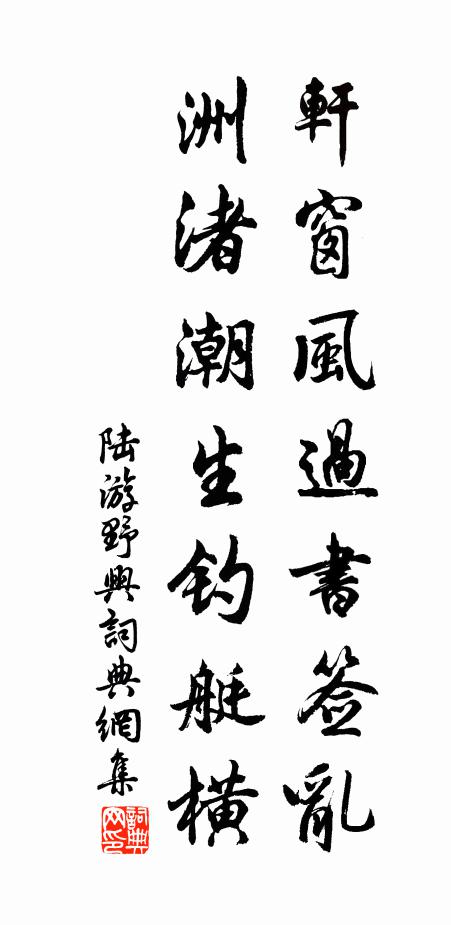 軒窗風過書签亂
洲渚潮生钓艇橫
陆游野興詞典網集
詞典网印